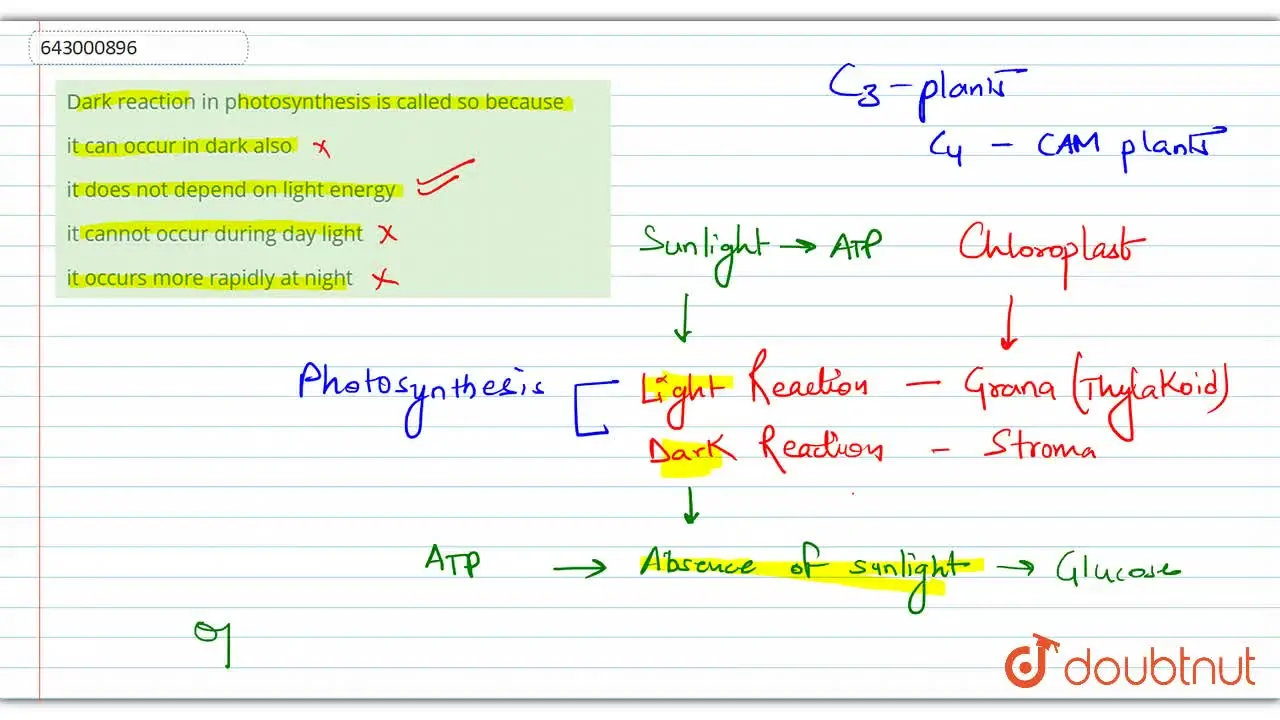 643000896
Dark reaction in photosynthesis is called so because
it can occur in dark also
it does not depend on light energy
it cannot occur during day light
it occurs more rapidly at night
C3 - plants
C4 - CAM plants
Sunlight → ATP
Chloroplast
Photosynthesis
Light Reaction - Grana (Thylakoid)
Dark Reaction - Stroma
ATP → Absence of sunlight → Glucose
doubtnut